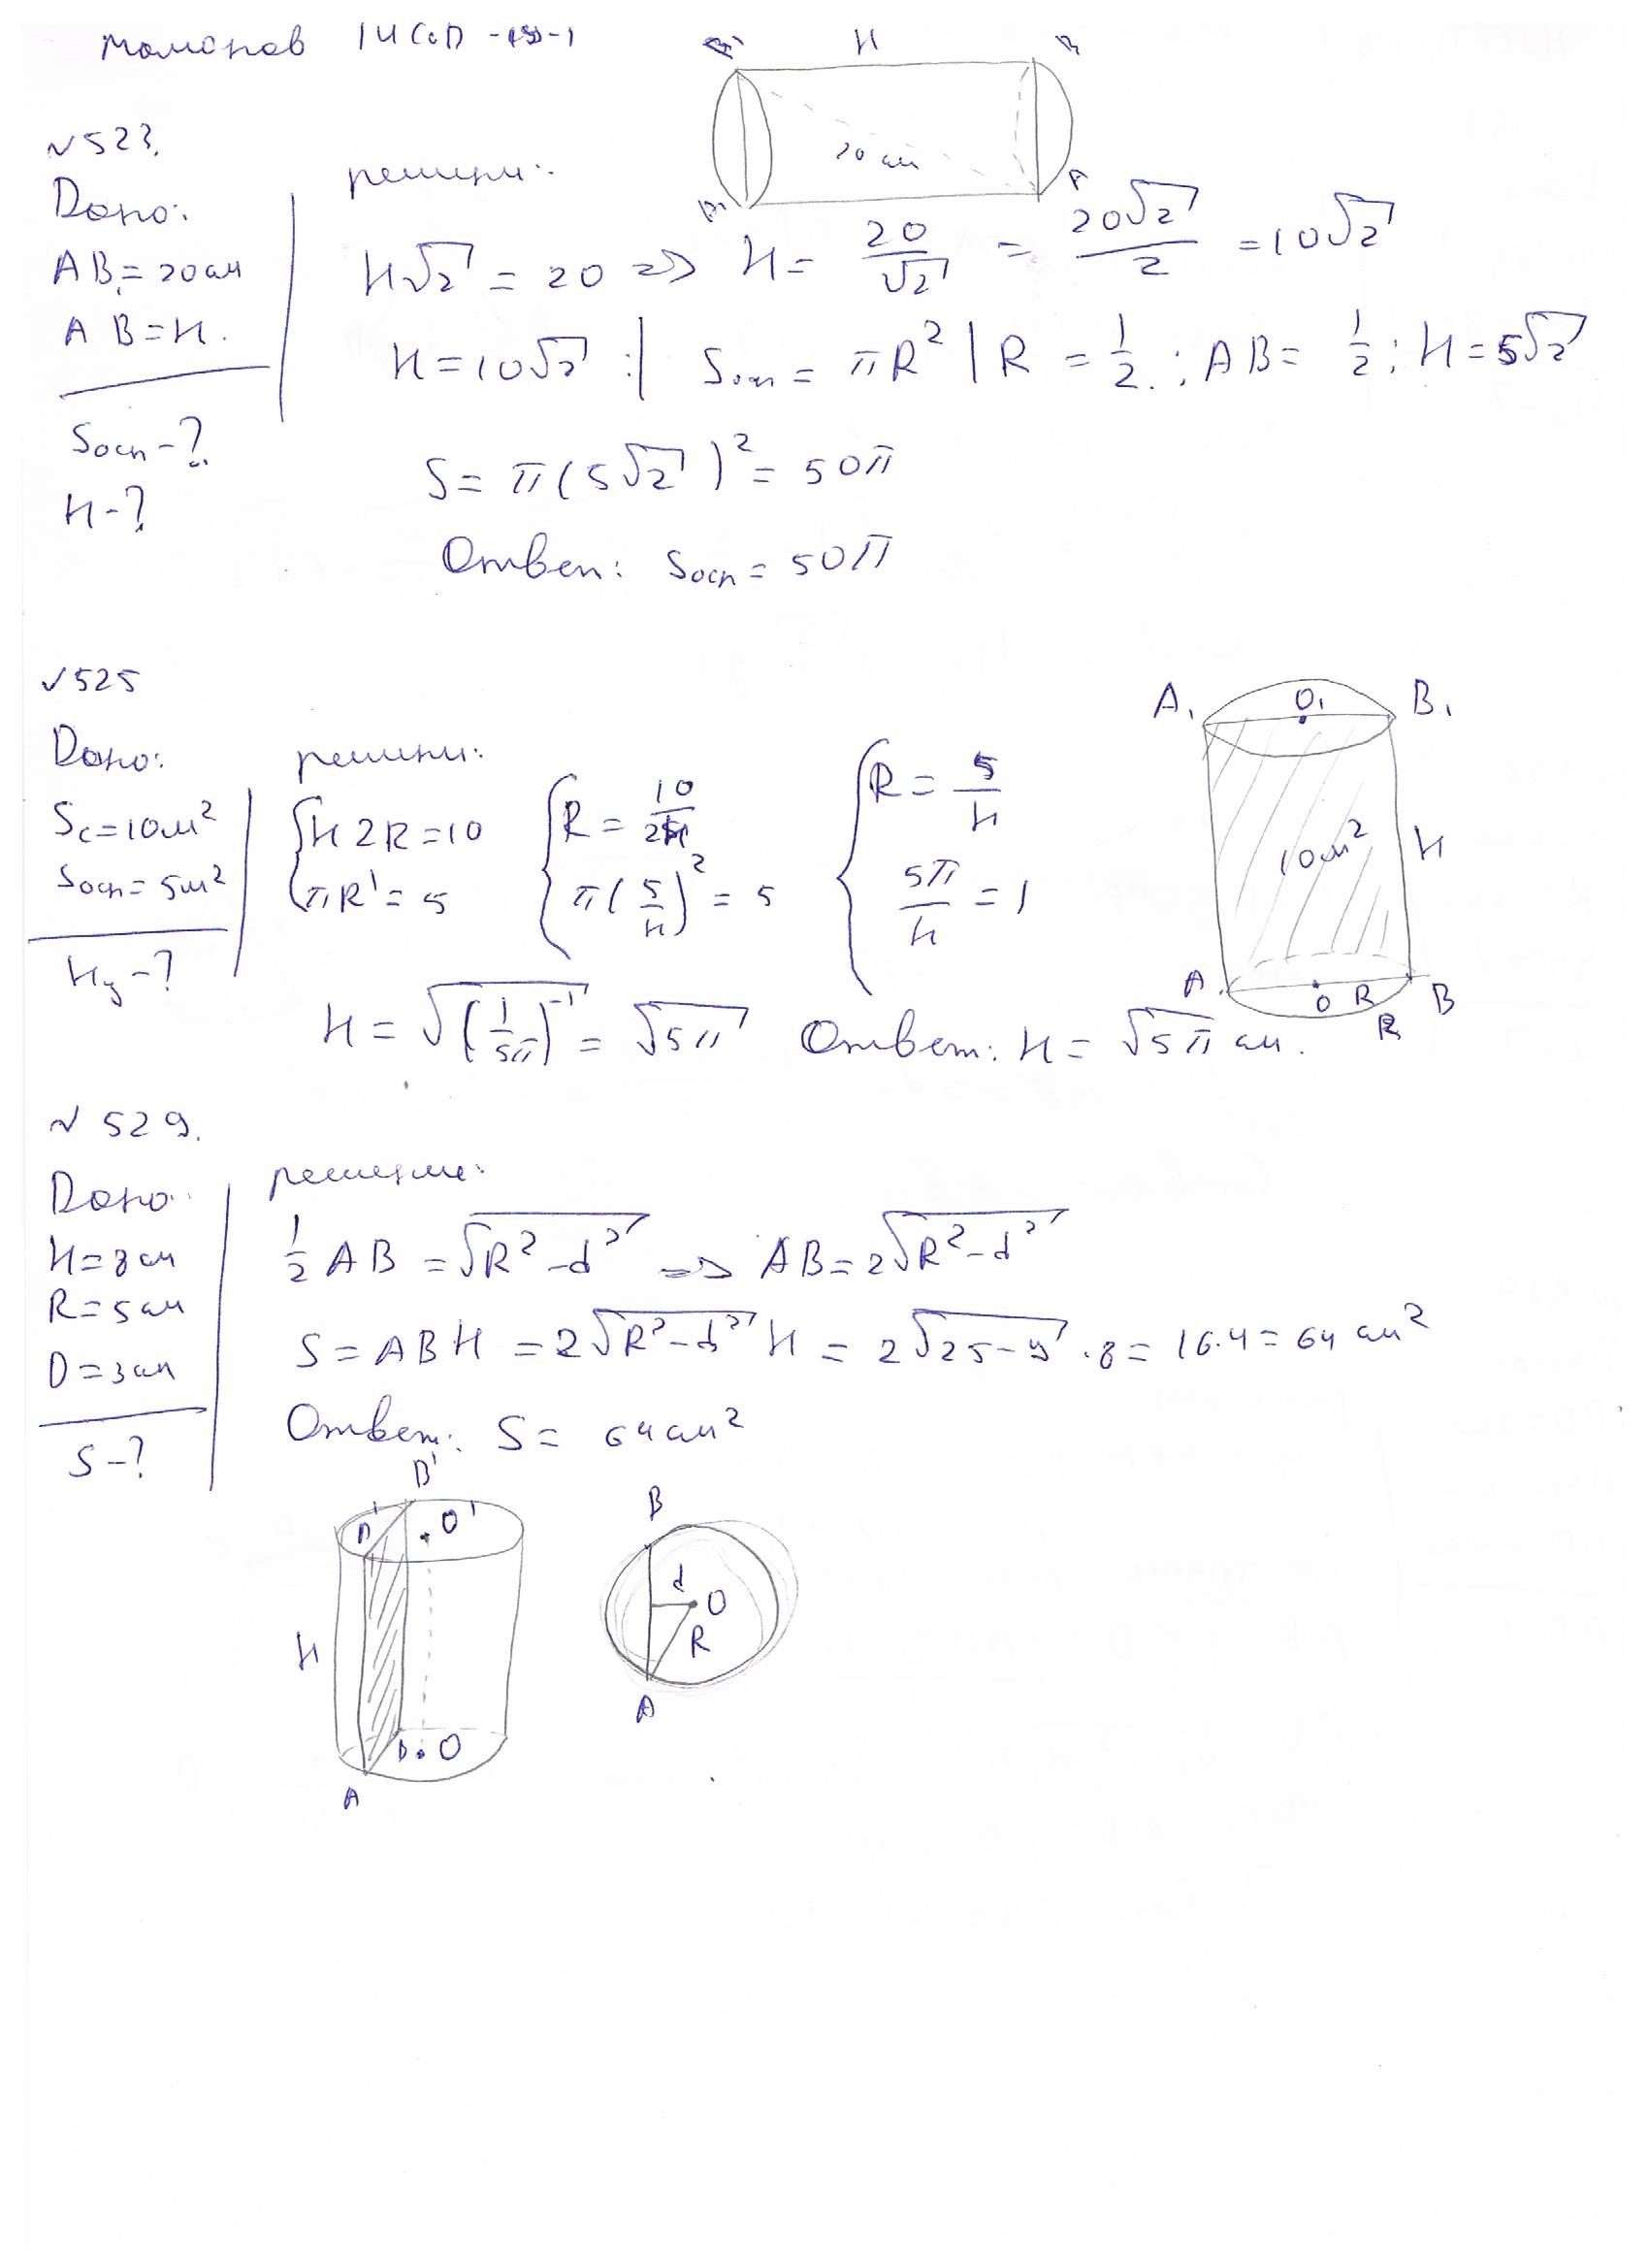 N523.
Дано:
AB₁=20см
AB=H.
Sосн-?
H-?
решени:
B₁ H B
20 см
A₁ A
H√2 = 20 => H = 20/√2 = 20√2/2 = 10√2
H=10√2 :| Sосн = πR² | R = 1/2.; AB = 1/2; H=5√2
S= π(5√2)² = 50π
Ответ: Sосн = 50π
√525
Дано:
Sс=10м²
Sосн=5м²
Hц-?
решени:
{H2R=10
πR'=5
{R=10/2H
π(5/H)²=5
{R=5/H
5π/H=1
H=√(1/5π)⁻¹ = √5π Ответ: H = √5π см.
A₁ O₁ B₁
10см² H
A O R B
R
N 529.
Дано:
H=8см
R=5см
D=3см
S-?
решение:
1/2 AB = √R²-d² => AB=2√R²-d²
S=ABH=2√R²-d² H = 2√25-9 · 8 = 16·4=64 см²
Ответ: S= 64см²
B' O'
H
O
A
B
d O
R
A